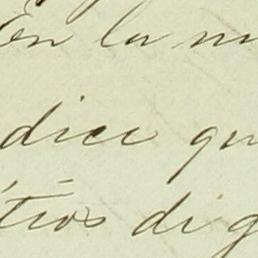 En la m
dice qu
tios di g